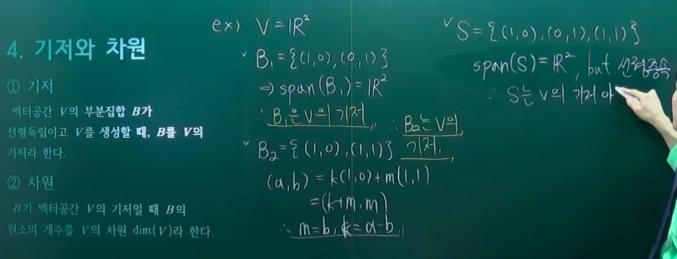 4. 기저와 차원
① 기저
벡터공간 V의 부분집합 B가
선형독립이고 V를 생성할 때, B를 V의
기저라 한다.
② 차원
B가 벡터공간 V의 기저일 때 B의
원소의 개수를 V의 차원 dim(V)라 한다.
ex) V=ℝ²
B₁={(1,0),(0,1)}
⇒ span(B₁)=ℝ²
∴ B₁은 V의 기저
B₂={(1,0),(1,1)}
(a,b)=k(1,0)+m(1,1)
=(k+m,m)
∴ m=b, k=a-b
∴ B₂는 V의
기저.
S={(1,0),(0,1),(1,1)}
span(S)=ℝ², but 선형종속
∴ S는 V의 기저 아